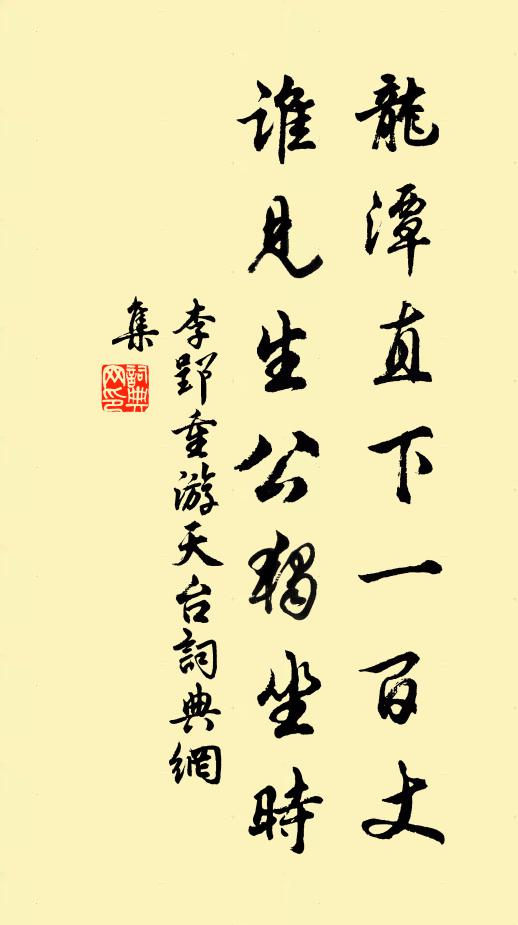 龍潭直下一百丈
誰見生公獨坐時
李郢重游天台詞典網
集
詞典
网印